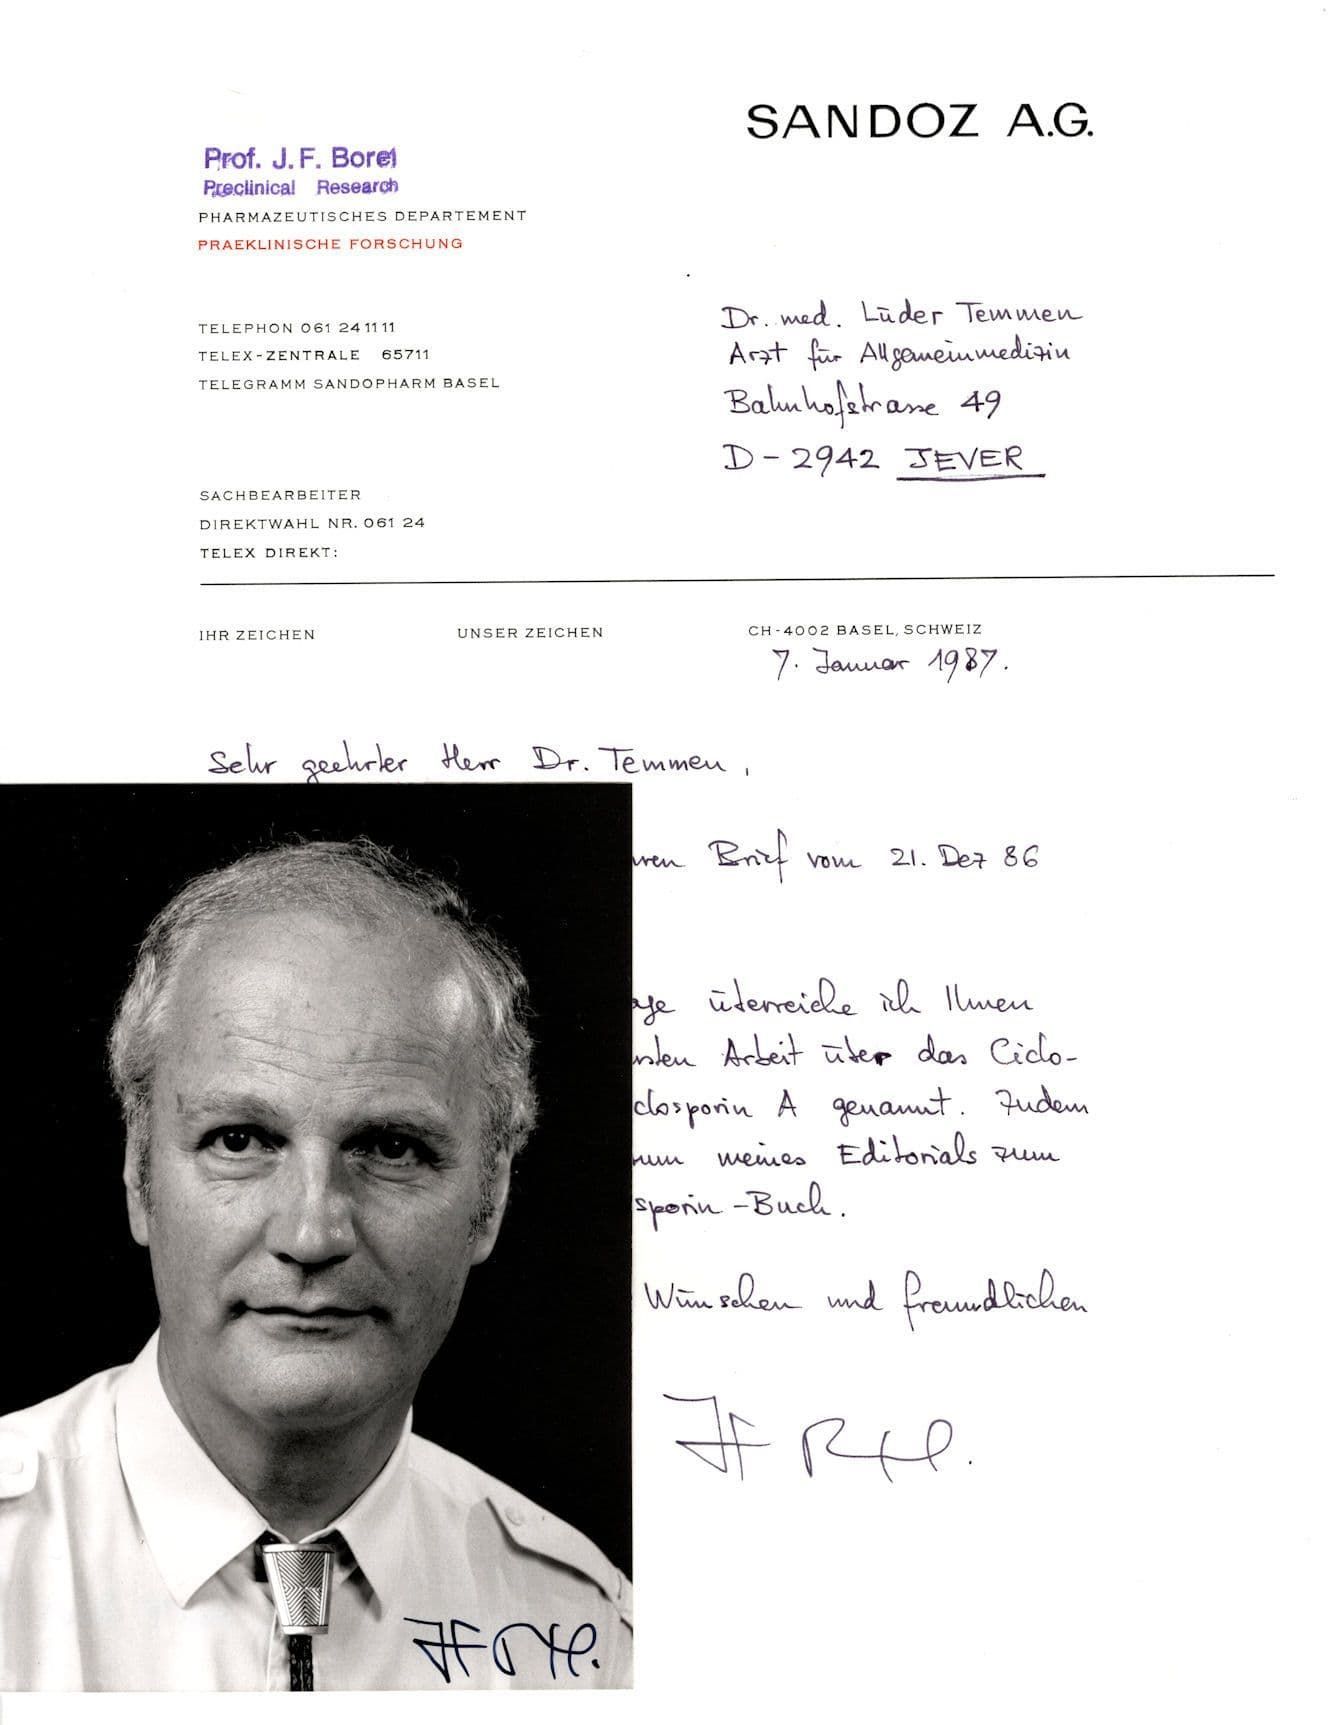 SANDOZ A.G.
Prof. J. F. Borel
Preclinical Research
PHARMAZEUTISCHES DEPARTEMENT
PRAEKLINISCHE FORSCHUNG
TELEPHON 061 241111
TELEX-ZENTRALE 65711
TELEGRAMM SANDOPHARM BASEL
Dr. med. Lüder Temmen
Arzt für Allgemeinmedizin
Bahnhofstrasse 49
D-2942 JEVER
SACHBEARBEITER
DIREKTWAHL NR. 061 24
TELEX DIREKT:
IHR ZEICHEN UNSER ZEICHEN CH-4002 BASEL, SCHWEIZ
7. Januar 1987.
Sehr geehrter Herr Dr. Temmen,
Brief vom 21. Dez 86
überreiche ich Ihnen
Arbeit über das Ciclo-
closporin A genannt. Zudem
meines Editorials zum
sporin-Buch.
Wünschen und freundlichen